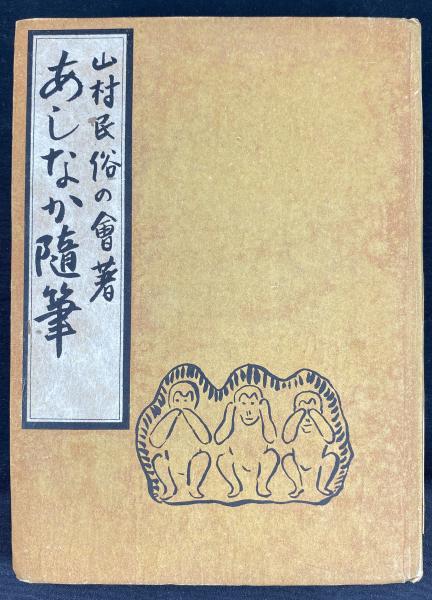 山村民俗の會著
あしなか隨筆